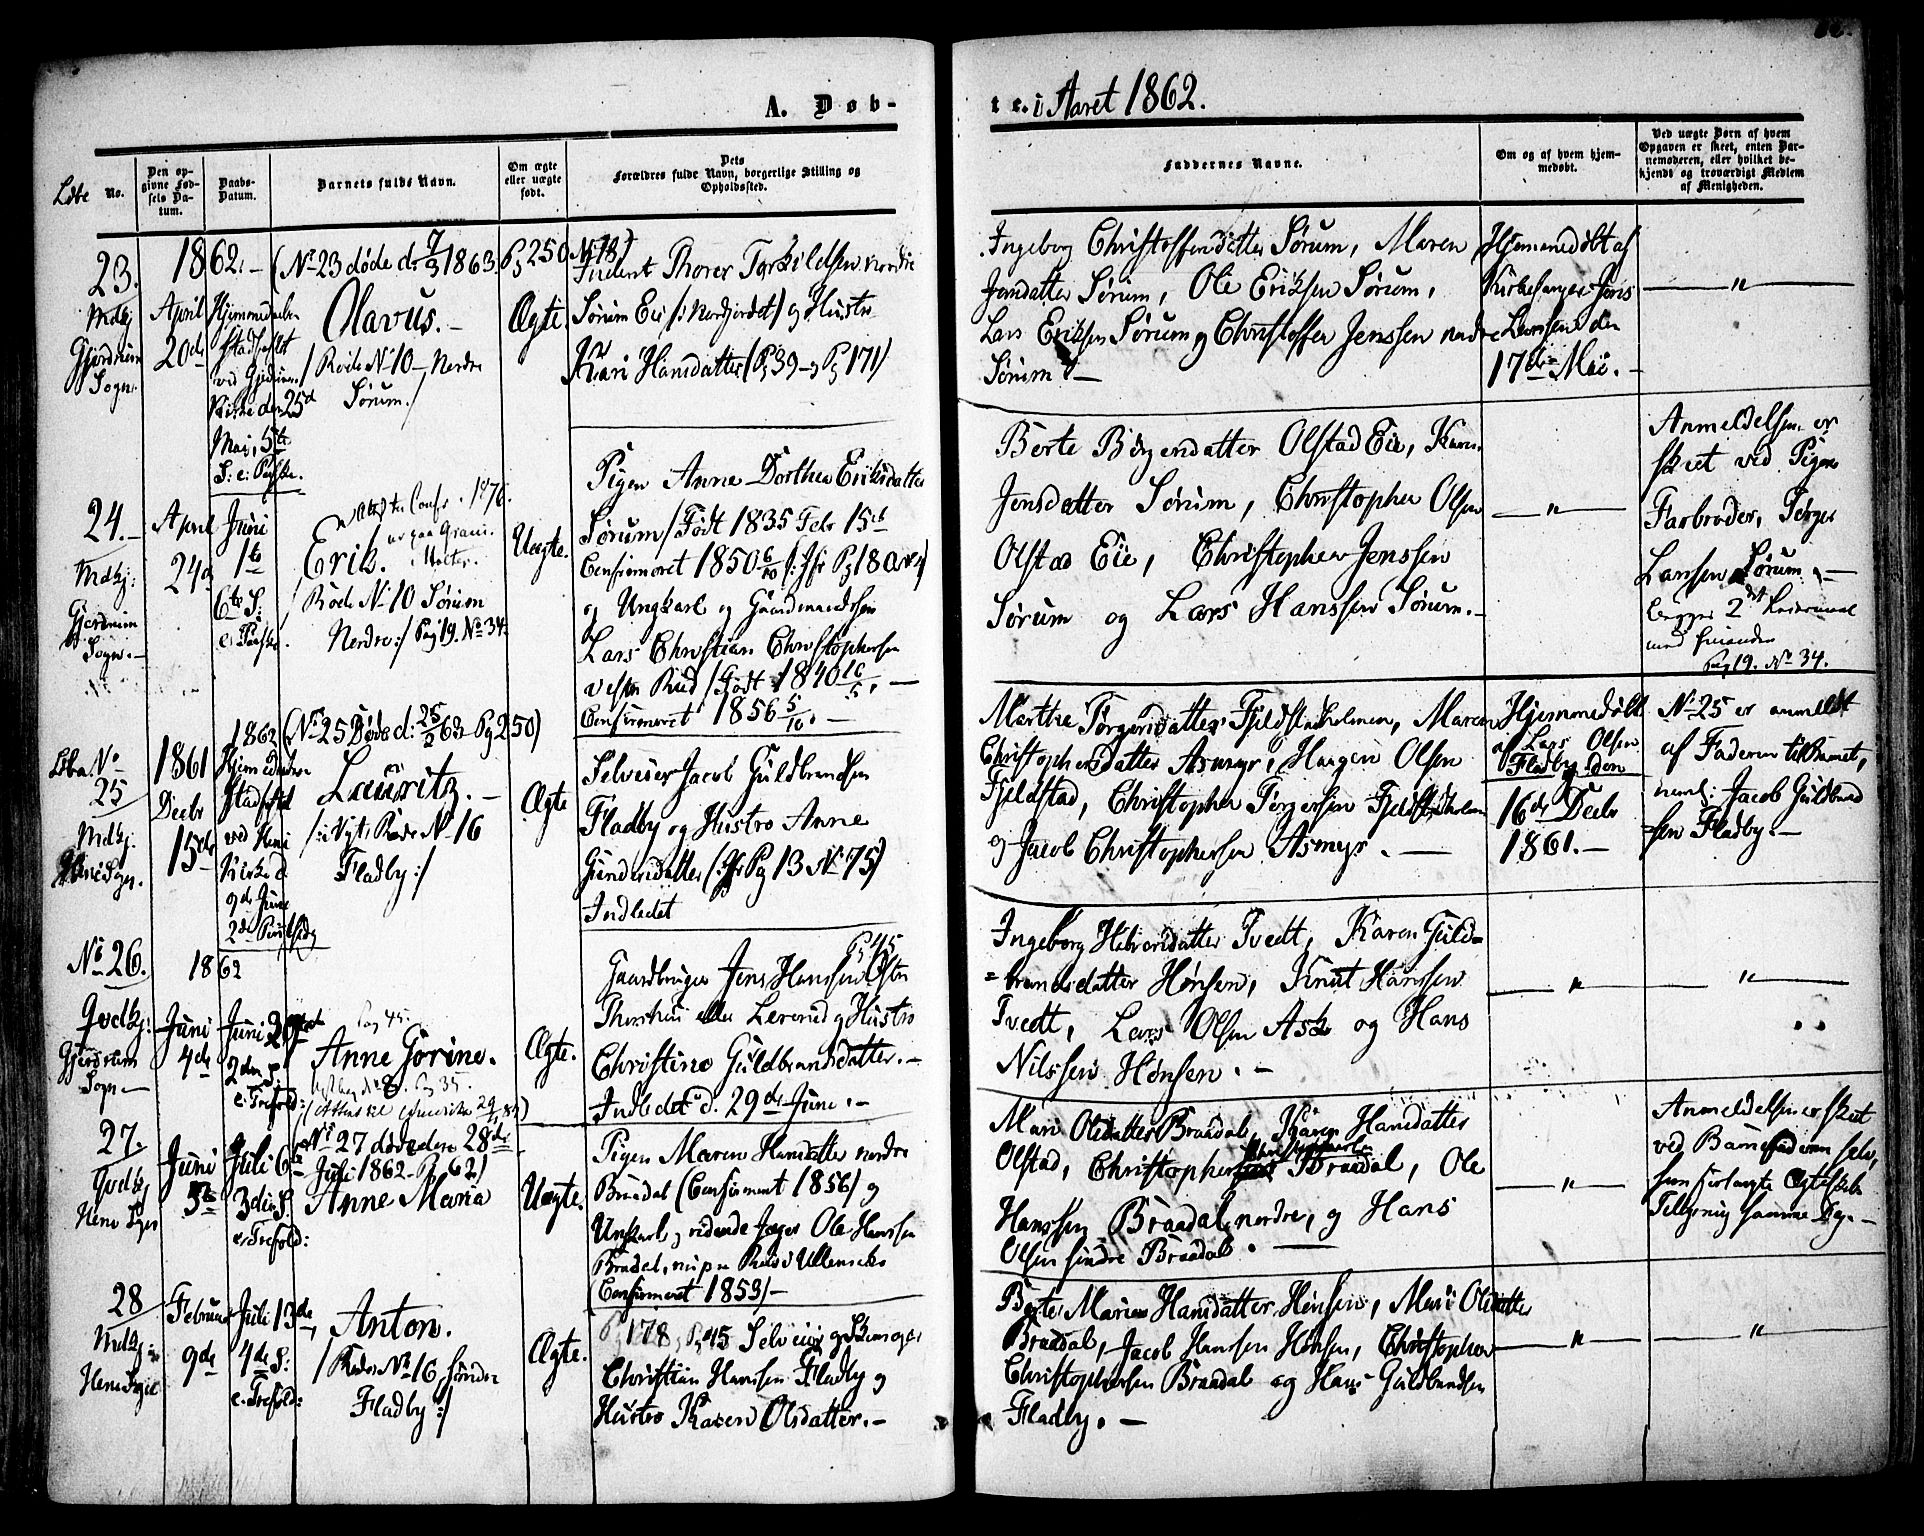 A. Døb-
te. i Aaret 1862.
Løbe No.
Den op-
givne Fød-
sels Da-
tum.
Daabs-
Datum.
Barnets fulde Navn.
Om ægte
eller uægte
født.
Dets
Forældres fulde Navn, borgerlige Stilling og
Opholdssted.
Faddernes Navne.
Om og af hvem hjem-
medøbt.
Ved uægte Børn af hvem
Opgaven er skeet, enten Bar-
nemoderen, eller hvilket be-
kjendt og troværdigt Medlem
af Menigheden.
23.
Mdkj
Gjerdrum
Sogn.
1862.
April
20de
Hjemmedøben
stadfæstet
ved Gjerdrum
Kirke den 25d
Mai, 5te
S: e: Paaske.
(No 23 døde d: 7/3 1863 Pg 250 No 18)
Olavus.
/Rode No 10 - Nordre
Sørum./
Ægte.
Inderst Thorer Torkildsen nordre
Sørum Eie og Hustru
Kari Hansdatter (Pg 39 - Pg 171)
Ingeborg Christoffersdatter Sørum, Maren
Jensdatter Sørum, Ole Eriksen Sørum,
Lars Eriksen Sørum og Christoffer Jenssen nedre
Sørum. -
Hjemmedøbt af
Kirkesanger Jens
Larsen den
17de Mai. -
24. -
Mdkj:
Gjerdrum
Sogn. -
April
24d
Juni
1te
6te S:
e. Paaske.
Confr. 1876.
Erik.
/Rode No 10 Sørum
Nordre:/ Pag 19. No 34.
Uægte.
Pigen Anne Dorthea Eriksdatter
Sørum /Født 1835 Febr 15de
Confirmeret 1850 6/10
og Ungkarl og Gaardmandssøn
Lars Christian Christophersen
vestre Rud /Født 1840 16/5. -
Confirmeret 1856 5/10. -
Berte Børgersdatter Olstad Eie, Karen
Jensdatter Sørum, Christopher Olsen
Olstad Eie, Christopher Jenssen
Sørum og Lars Hanssen Sørum. -
Anmeldelsen er
skeet ved Pigens
Farbroder, Torger
Larsen Sørum. -
begges 2det Leiermaal
med hinanden
Pag 19. No 34.
Løbe No
25
Mdkj.
Heni Sogn.
1861
Decbr
15de
1862
Hjemmedøben
Stadfæstet
ved Heni
Kirke d.
9de Juni
2den Pintsedag
(No 25 Døde d: 25/2 63 Pg 250)
Lauritz. -
/:Vgt: Rode No 16
Fladby:/
Ægte
Selveier Jacob Guldbrandsen
Fladby og Hustro Anne
Gundersdatter (:Jfr Pg 13 No 75)
Indledet
Marthe Torgersdatter Fjeldstadholmen, Maren
Christophersdatter Asmyr, Haagen Olsen
Fjeldstad, Christopher Torgersen Fjeldstadholmen
og Jacob Christophersen Asmyr. -
Hjemmedøbt
af Lars Olsen
Fladby den
16de Decbr
1861. -
No 25 er anmeldt
af Faderen til Daaben,
neml: Jacob Guldbrand
sen Fladby. -
No 26.
Godkj:
Gjerdrum
Sogn -
1862
Juni
4de
Juni 29
2den S:
e. Trefold:
Pag 45.
Anne Gorine.
(Attest til Amerika 29/ 82)
Ægte.
Pg 45
Gaardbruger Jens Hanssen Østre
eller Lererud og Hustro
Christine Guldbrandsdatter. -
Indledet d. 29de Juni. -
Ingeborg Halvorsdatter Tvedt, Karen Guld=
=brandsdatter Hønsen, Knut Hanssen
Tvedt, Lars Olsen Ask og Hans
Nilssen Hønsen. -
27.
Godkj
Heni Sogn
Juni
5te
Juli 6te
3die S.
e. Trefold:
No 27 døde den 28de
Juli 1862. Pg 62)
Anne Maria
Uægte.
Pigen Maren Hansdatter nordre
Braadal (Confirmeret 1856) og
Ungkarl, ridende Jæger Ole Hanssen
Bradal, nu paa i Ullensaker
(Confirmeret 1853) -
Mari Olsdatter Braadal, Karen Hansdatter
Olstad, Christopher Braadal, Ole
Hanssen Braadal, nordre, og Hans
Olsen søndre Braadal. -
Anmeldelsen er skeet
ved Barnefaderen selv,
som forlangte Ægteskabs
Tillysning samme Dag. -
28
Mdkj
Heni Sogn
Februar
9de
Juli 13de
4de S:
e. Trefold:
Anton.
/Rode No 16 søndre
Fladby:/
Ægte.
Pg 178, Pg 45 Selveier og Skomager
Christian Hanssen Fladby og
Hustro Karen Olsdatter. -
Berte Marie Hansdatter Hønsen, Mari Olsdatter
Braadal, Jacob Hanssen Hønsen, Christopher
Christophersen Braadal og Hans Guldbrandsen
Fladby. -